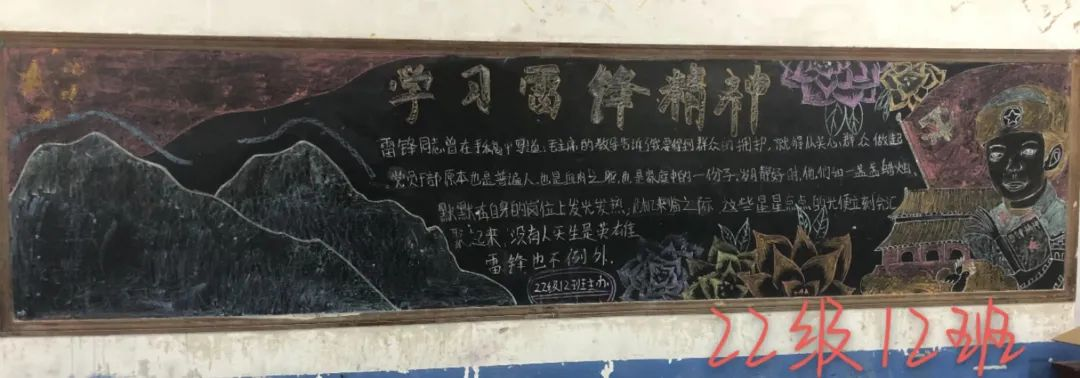 学习雷锋精神
雷锋同志曾在 毛主席的教导告诉我要得到群众的拥护,就得从关心群众做起
党员干部原本也是普通人,也是血肉之躯,也是家庭中的一份子,岁月静好时,他们如一盏盏蜡烛,
默默在自身的岗位上发光发热,危机来临之际,这些星星点点的光便立刻会汇
聚起来,没有人天生是英雄
雷锋也不例外.
22级12班主办.
22级12班